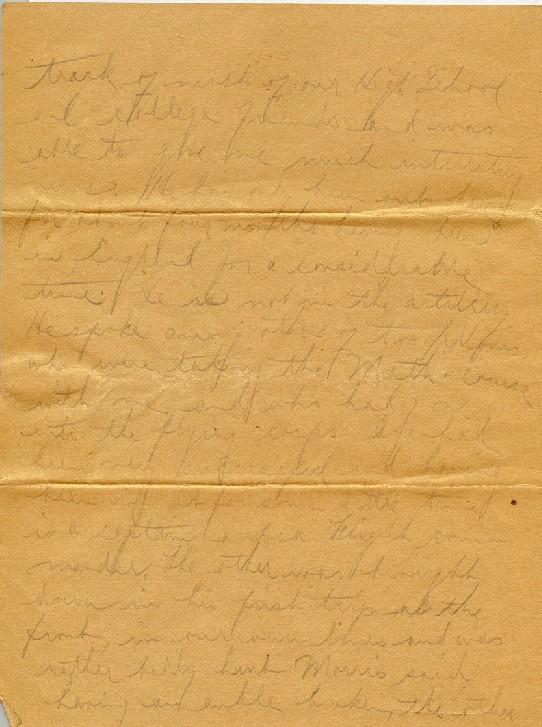 track of most of our High School
and college friends and was
able to give me much interesting
news. He has only been out here
for about four months having been
in England for a considerable
time. He is now in the artillery
He spoke among others of two fellows
who were taking that Math. course
with me and who had
into the flying corps. I
been very
some little time
is a captain a Flight com-
mander. The other was brought
down in his first trip at the
front, in our own lines and was
rather badly hurt Morris said
having one ankle broken, the other